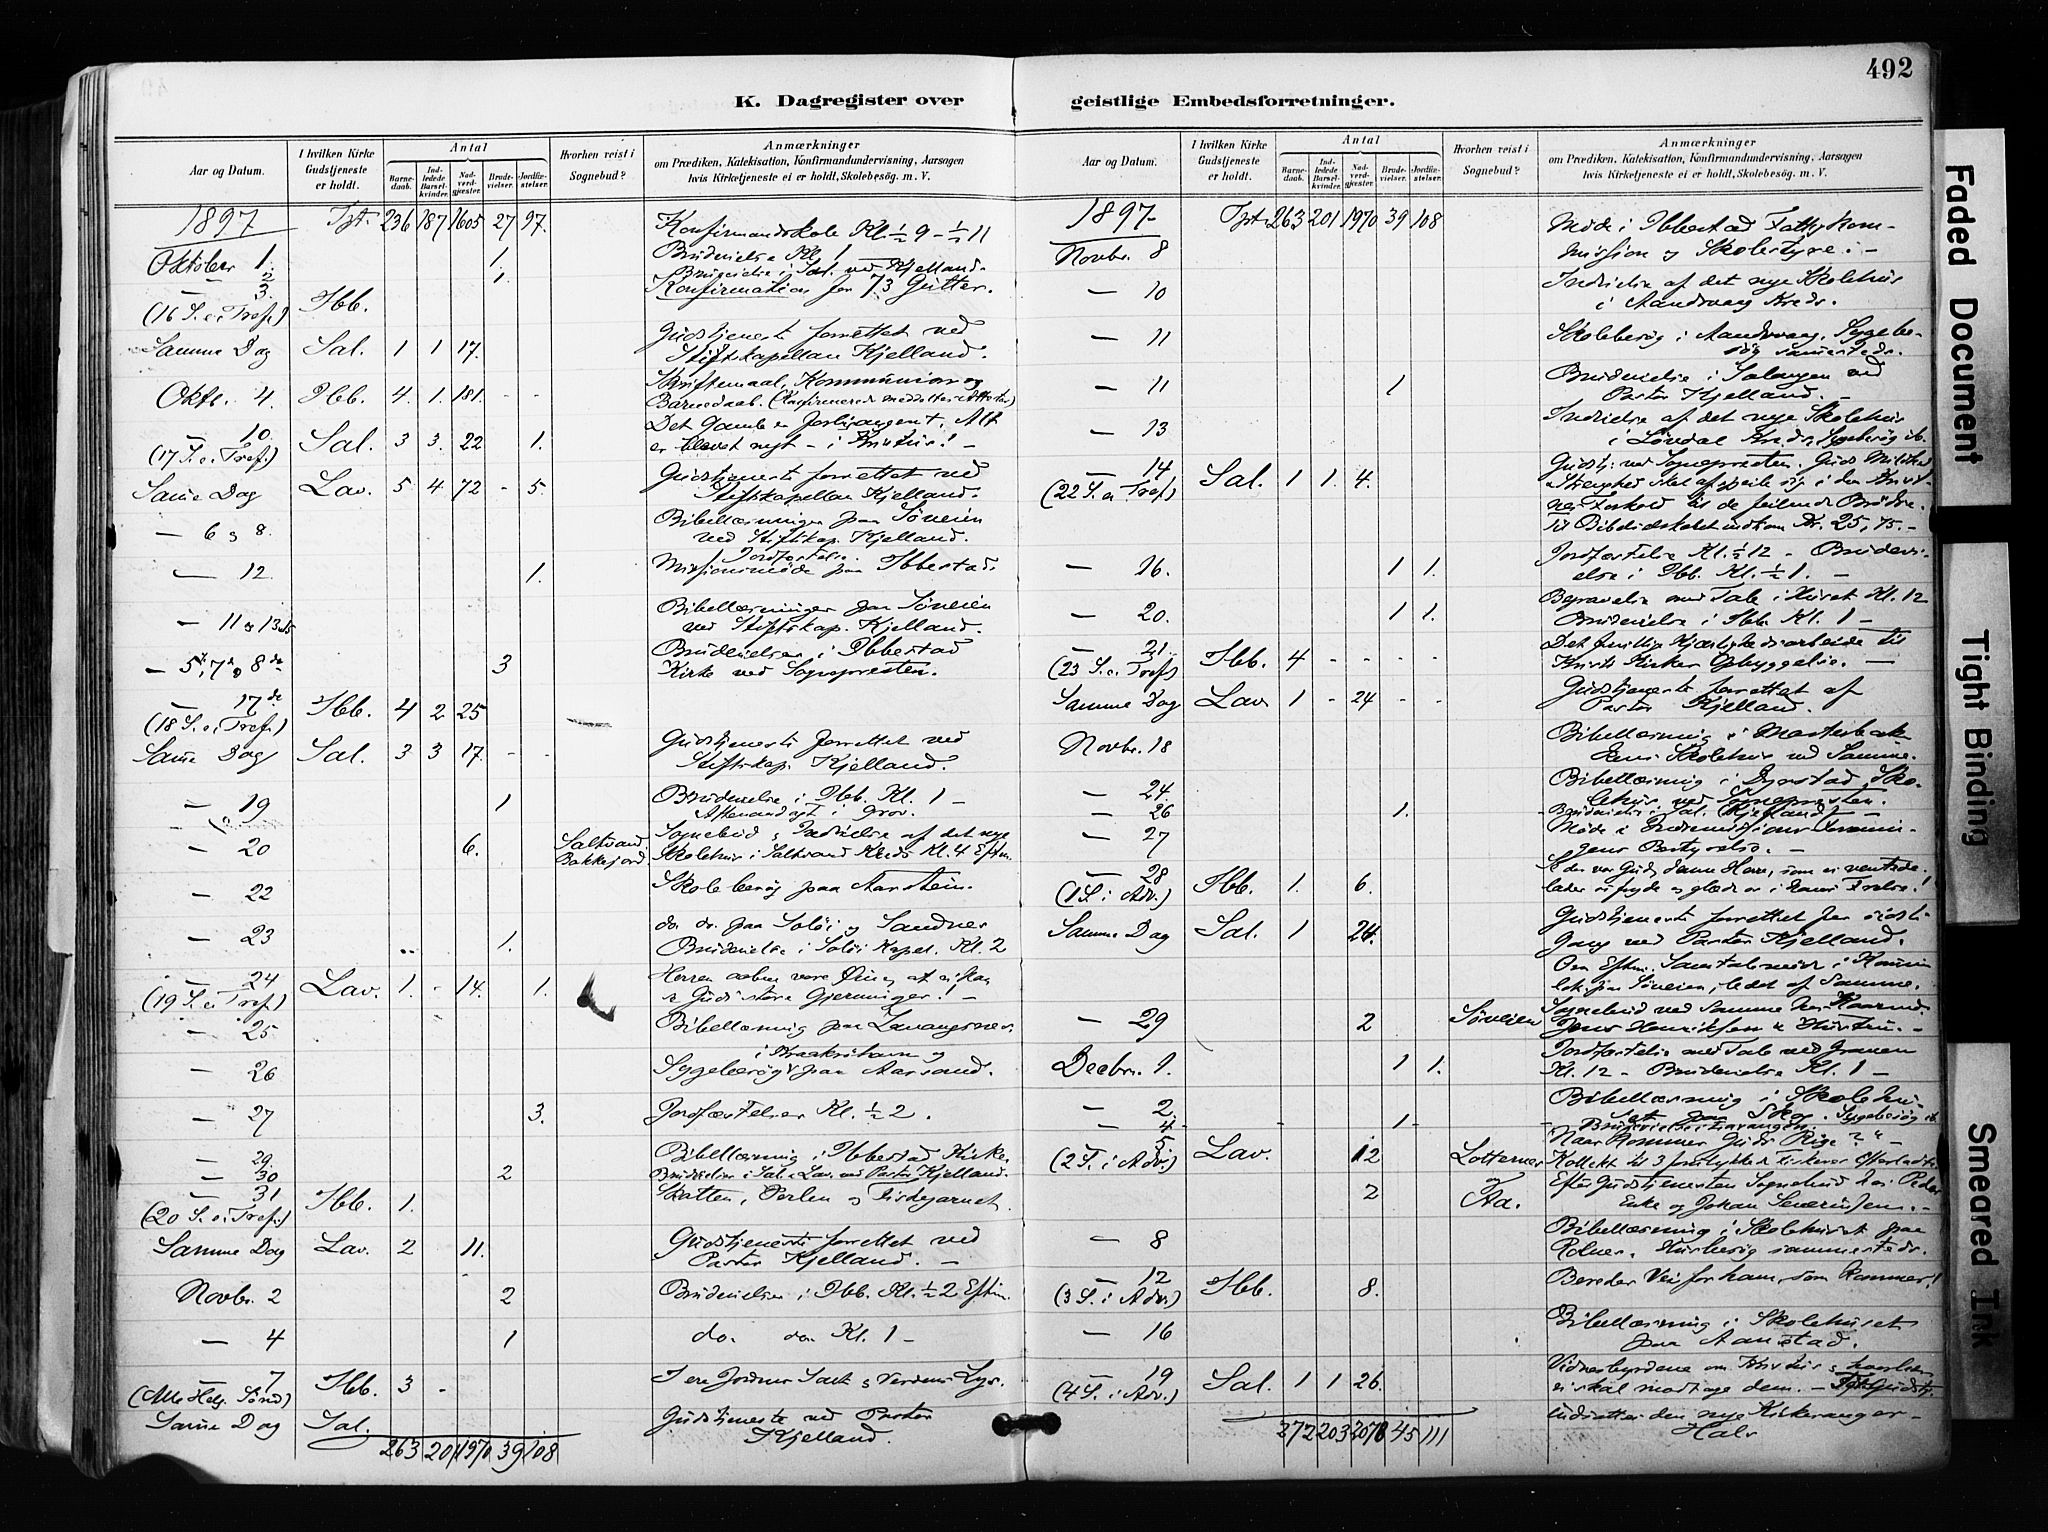 492
K. Dagregister over geistlige Embedsforretninger.
Aar og Datum.
I hvilken Kirke Gudstjeneste er holdt.
Antal
Barnedaab.
Indledede Barselkvinder.
Nadverdgjester.
Brudevielser.
Jordfæstelser.
Hvorhen reist i Sognebud?
Anmærkninger
om Prædiken, Katekisation, Konfirmandundervisning, Aarsagen
hvis Kirketjeneste ei er holdt, Skolebesøg. m. V.
1897 Tpt. 236 187 1605 27 97. Konfirmandskole Kl. ½ 9 - ½ 11
Oktober 1. 1. Brudevielse Kl. 1
— 2 1. Brudevielse i Sal. ved Kjelland.
— 3. Konfirmation for 73 Gutter.
(16 S. e. Tref.) Ibb.
Samme Dag Sal. 1 1 17. Gudstjeneste forrettet ved
Stiftskapellan Kjelland.
Oktb. 4. Ibb. 4. 1. 181. - - Skriftemaal, Kommunion og
Barnedaab.
— 10 Sal. 3 3. 22 1. Det Gamle er forbigangent, Alt
(17 S. e. Tref.) er blevet nyt - i Kristus! -
Samme Dag Lav. 5 4. 72 - 5. Gudstjeneste forrettet ved
Stiftskapellan Kjelland.
— 6 og 8. Bibellæsninger paa Søveien
ved Stiftskap. Kjelland.
— 12. 1. Jordfæstelse.
Missionsmøde paa Ibbestad.
— 11 og 13 Bibellæsninger paa Søveien
ved Stiftskap. Kjelland.
— 5te, 7de og 8de 3 Brudevielser i Ibbestad
Kirke ved Sognepresten.
— 17de Ibb. 4 2 25
(18 S. e. Tref.)
Samme Dag Sal. 3 3 17. - - Gudstjeneste forrettet ved
Stiftskap. Kjelland.
— 19 1 Brudevielse i Ibb. Kl. 1 -
i Grov.
— 20 6. Saltvand. Sognebud og Indvielse af det nye
Bakkejord. Skolehus i Saltvand Kreds Kl. 4 Eftm.
— 22 Skolebesøg paa Aarstein.
— 23 1. do. do. paa Soløi og Sandnes
Brudevielse i Soløi Kapel. Kl. 2
— 24 Lav. 1. - 14. 1. Herren aabne vore Øine, at vi kan
(19 S. e. Tref.) se Guds store Gjerninger! -
— 25 Bibellæsning paa Lavangsnes.
— 26 Sygebesøg paa Aarsand.
— 27 3. Jordfæstelser Kl. ½ 2.
— 29. Bibellæsning i Ibbestad Kirke.
— 30 2 Brudevielser i Sal. & Lav. ved Pastor Kjelland.
— 31 Ibb. 1. Skatten, Perlen og Fiskegarnet.
(20 S. e. Tref.)
Samme Dag Lav. 2 11. Gudstjeneste forrettet ved
Pastor Kjelland. -
Novbr. 2 2 Brudevielser i Ibb. Kl. ½ 2 Eftm.
— 4 1 do. do. Kl. 1 -
— 7 Ibb. 3 - I ere Jordens Salt og Verdens Lys.
(Alle Helg. Sønd)
Samme Dag Sal. Gudstjeneste ved Pastor
Kjelland.
263 201 1970 39 108
Aar og Datum.
I hvilken Kirke Gudstjeneste er holdt.
Antal
Barnedaab.
Indledede Barselkvinder.
Nadverdgjester.
Brudevielser.
Jordfæstelser.
Hvorhen reist i Sognebud?
Anmærkninger
om Prædiken, Katekisation, Konfirmandundervisning, Aarsagen
hvis Kirketjeneste ei er holdt, Skolebesøg. m. V.
1897- Tpt. 263 201 1970 39 108 Møde i Ibbestad Fattigkom-
Novbr. 8 mission og Skolestyre. -
— 10 Indvielse af det nye Skolehus
i Aandsvaag Kreds.
— 11 Skolebesøg i Aandsvaag. Sygebe-
søg sammesteds.
— 11 1 Brudevielse i Salangen ved
Pastor Kjelland. -
— 13 Indvielse af det nye Skolehus
i Løvdal Kreds, Sygebesøg
— 14 Sal. 1 1. 4. Gudstj. ved Sognepresten. Guds Mildhed
(22 S. e. Tref) & Strenghed skal afspeile sig i den Krist-
nes Forhold til de feilende Brødre.
Kr. 25,75. -
— 16. 1 1. Jordfæstelse Kl. ½ 12 - Brudevi-
else i Ibb. Kl. ½ 1. -
— 20. 1 1. Begravelse med Tale i Huset Kl. 12
Brudevielse i Ibb. Kl. 1 -
— 21. Ibb. 4 - - - - Det frivillige Kjærlighedsarbeide til
(23 S. e. Tref) Kristi Kirkes Opbyggelse. -
Samme Dag Lav. 1 - 24 - - Gudstjeneste forrettet af
Pastor Kjelland.
Novbr. 18 Bibellæsning i
Skolehus ved Samme.
— 24 Bibellæsning i Dyrstad Sko-
lehus ved Sognepresten.
— 26 1. Brudevielse i Sal. (Kjelland) -
— 27 Møde i Indremissions Forenin-
gens Bestyrelse. -
— 28 Ibb. 1. 6.
(1 S. i Adv.)
Samme Dag Sal. 1 24. Gudstjeneste forrettet for sidste
Gang ved Pastor Kjelland.
Om Eftm. Samtalemøde i
paa Søveien, ledet af Samme.
— 29 2 Søveien Sognebud ved Samme hos
Jens Henriksen & Hustru. -
Decbr. 1. 1 1. Jordfæstelse med Tale ved Graven
Kl. 12 - Brudevielse Kl. 1 -
— 2. Bibellæsning i Skolehu-
set paa Skog. Sygebesøg
— 4 - - 1 - Brudevielse i Lavangen.
— 5 Lav. 12 Lotternes Naar kommer Guds Rige? -
(2 S. i Adv.) Kollekt til 3
2 og Aa. Efter Gudstjenesten Sognebud hos Peder
Enke og Johan Severinsen. -
— 8 Bibellæsning i Skolehuset paa
Rolnes. Husbesøg sammesteds.
— 12 Ibb. 8. Bereder Vei for ham, som kommer!
(3 S. i Adv.)
— 16 Bibellæsning i Skolehuset
paa Aanstad.
— 19 Sal. 1 1 26. Vidnesbyrdene om Kristus & hvorledes
(4 S. i Adv.) vi skal modtage dem. -
272 203 2078 45 111
Faded Document
Tight Binding
Smeared Ink